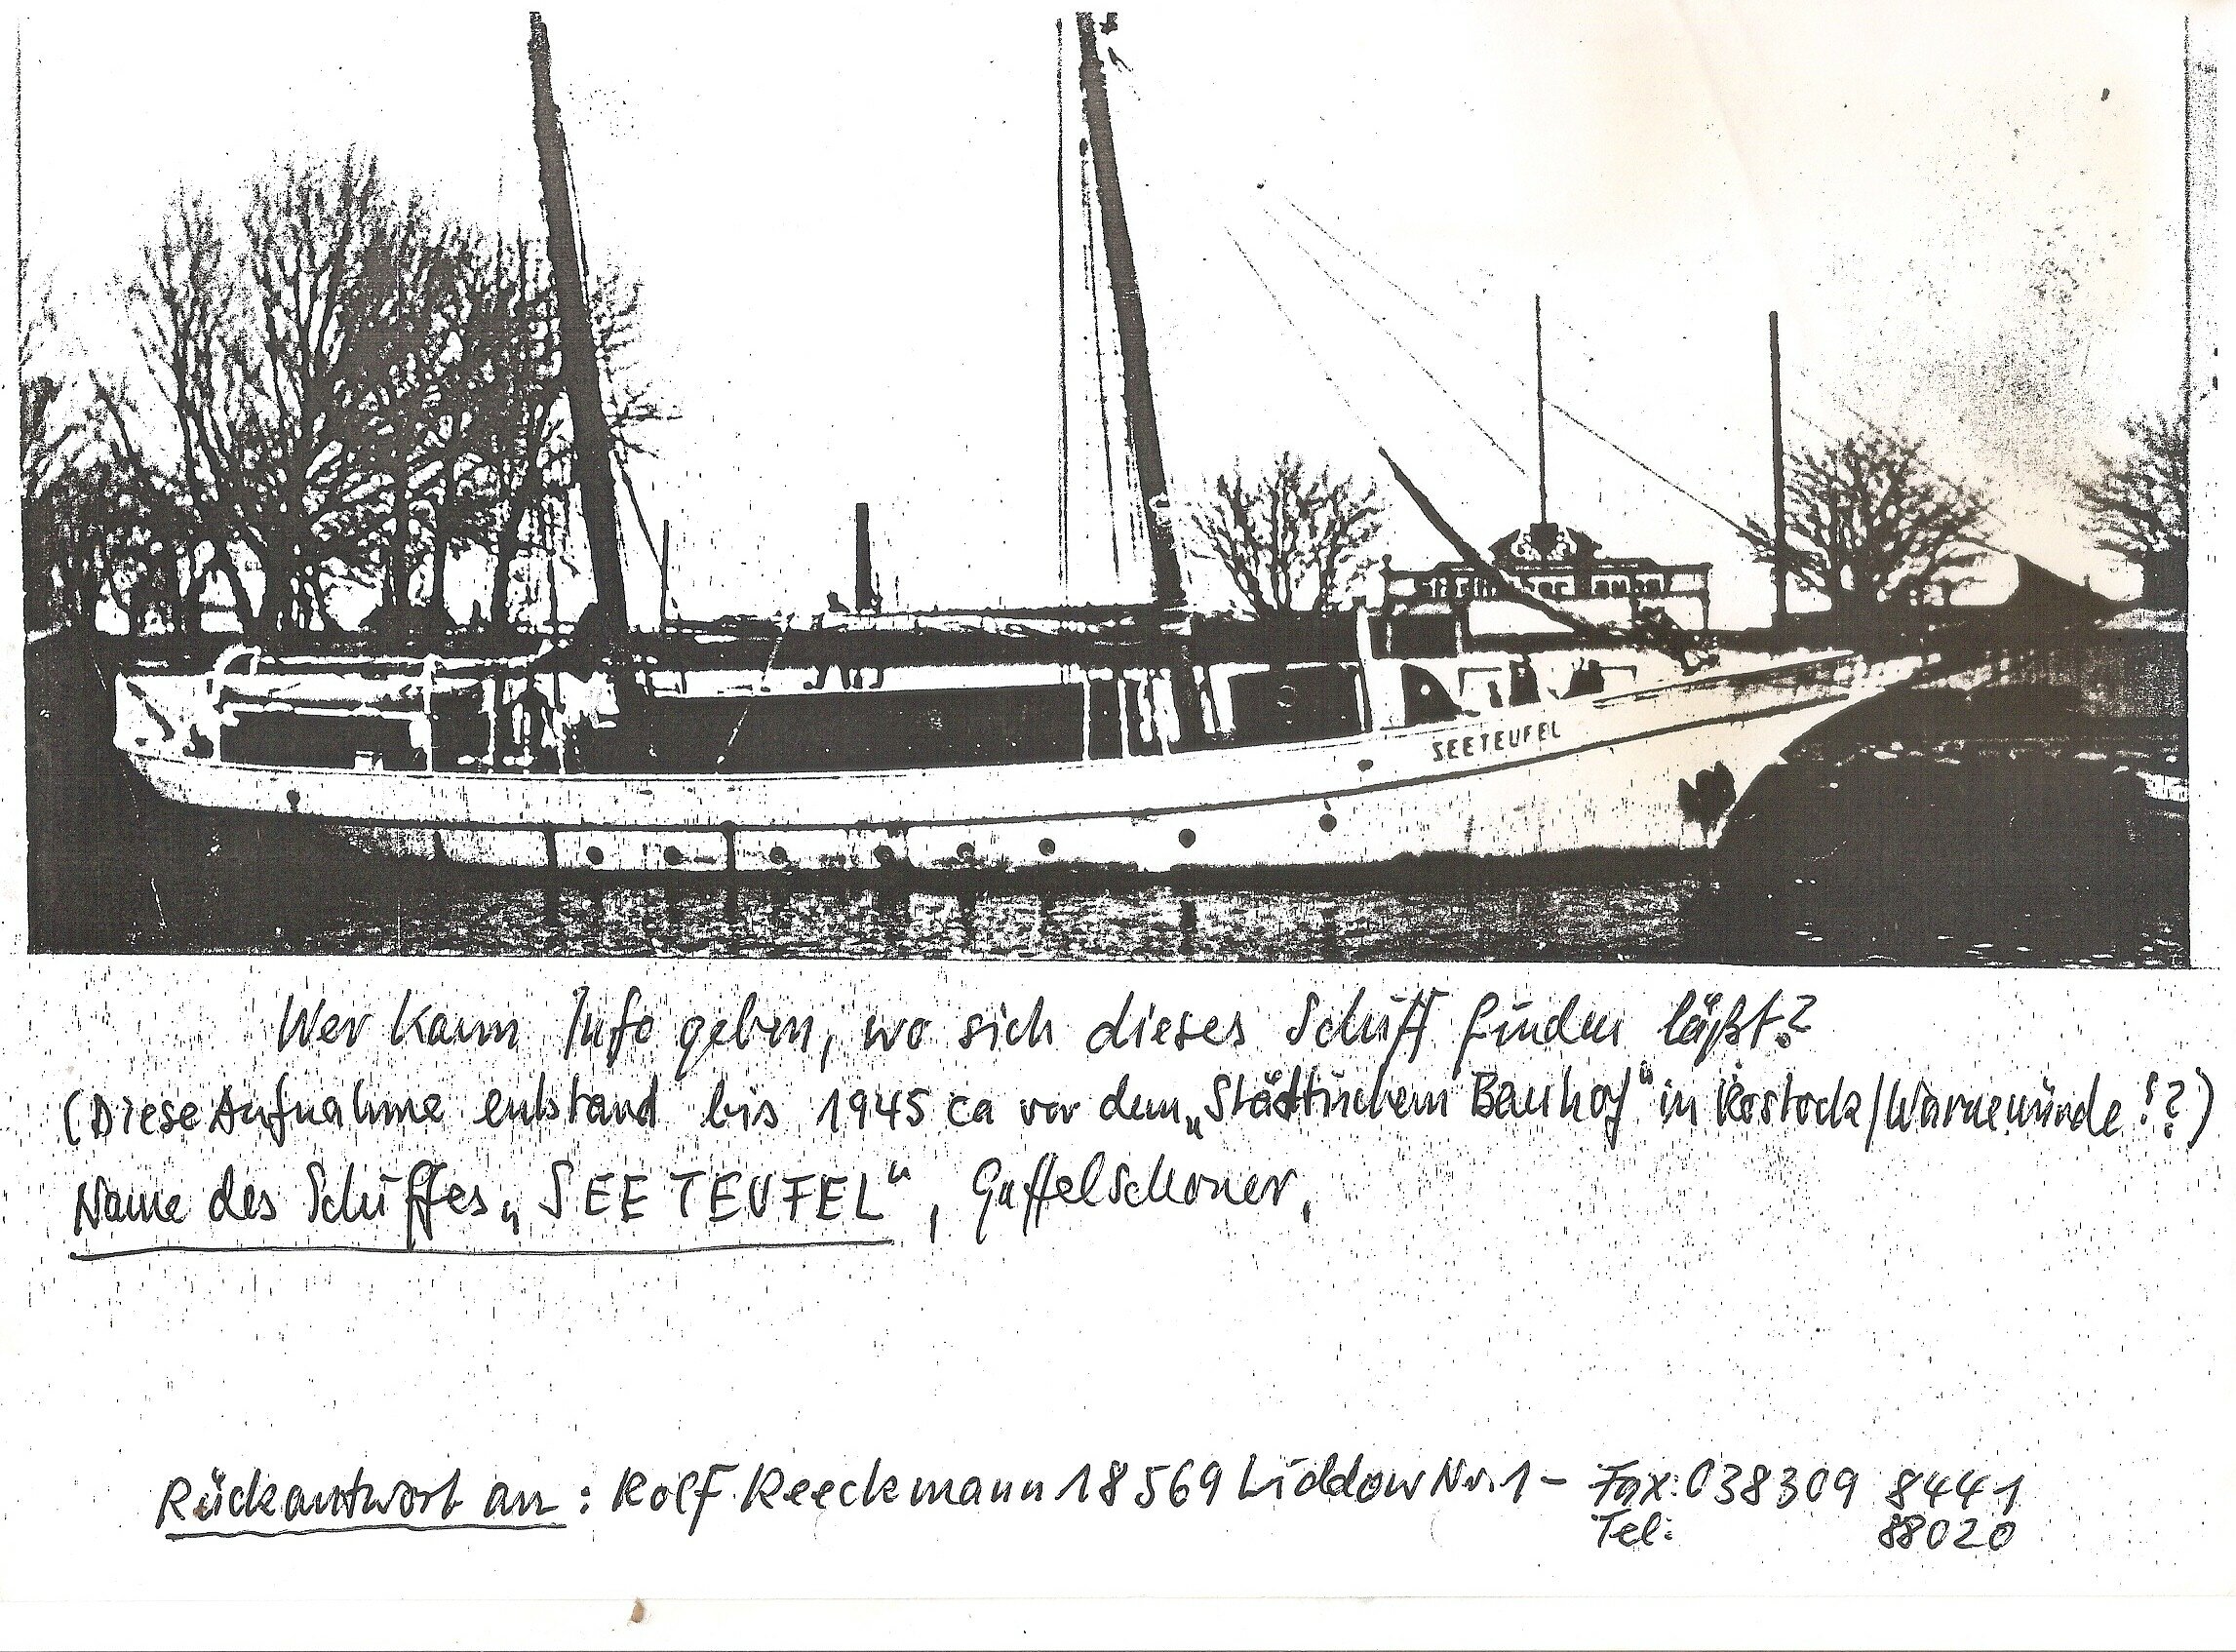 SEETEUFEL
Wer kann Info geben, wo sich dieses Schiff finden läßt?
(Diese Aufnahme entstand bis 1945 ca vor dem „Städtischem Bauhof“ in Rostock/Warnemünde!?)
Name des Schiffes „SEETEUFEL“, Gaffelschoner,
Rückantwort an: Rolf Reeckmann 18569 Liddow Nr. 1 – Fax: 038309 8441
Tel: 88020